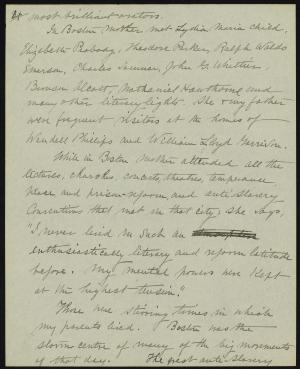 most brilliant orators.
In Boston Mother met Lydia Maria Child,
Elizabeth Peabody, Theodore Parker, Ralph Waldo
Emerson, Charles Sumner, John G. Whittier,
Bronson Alcott, Nathaniel Hawthorne and
many other literary lights. She & my father
were frequent visitors at the homes of
Wendell Phillips and William Lloyd Garrison.
While in Boston Mother attended all the
lectures, churches, concerts, theatres, temperance,
peace and prison-reform, and anti slavery
Conventions that met in that city; she says,
"I never lived in such an
enthusiastically literary and reform latitude
before. My mental powers were kept
at the highest tension."
Those were stirring times in which
my parents lived. Boston was the
storm centre of many of the big movements
of that day. The great anti slavery